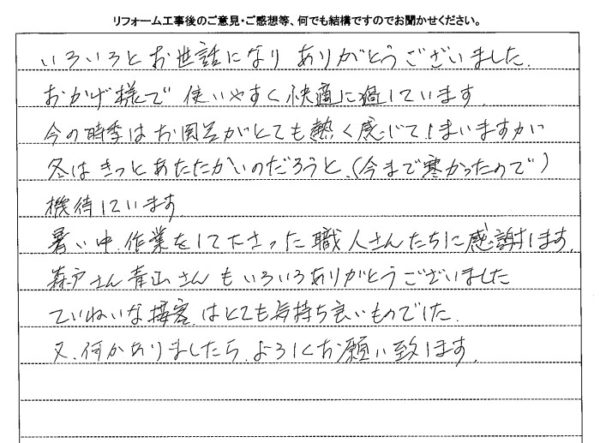 リフォーム工事後のご意見・ご感想等、何でも結構ですのでお聞かせください。
いろいろとお世話になり ありがとうございました.
おかげ様で 使いやすく快適に過しています.
今の時季はお風呂がとても熱く感じてしまいますが
冬は きっと あたたかいのだろうと、(今まで寒かったので)
機待しています.
暑い中、作業をして下さった職人さんたちに感謝します.
森戸さん青山さんもいろいろありがとうございました
ていねいな接客はとても気持ち良いものでした.
又、何かありましたら、よろしくお願い致します.